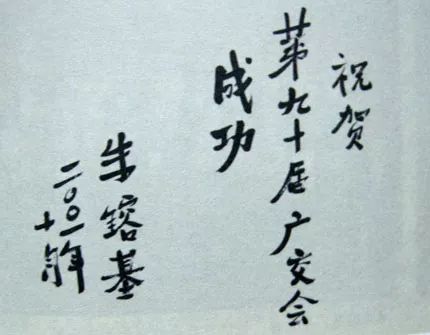 祝贺
第九十届广交会
成功
朱镕基
二〇〇一年
十月